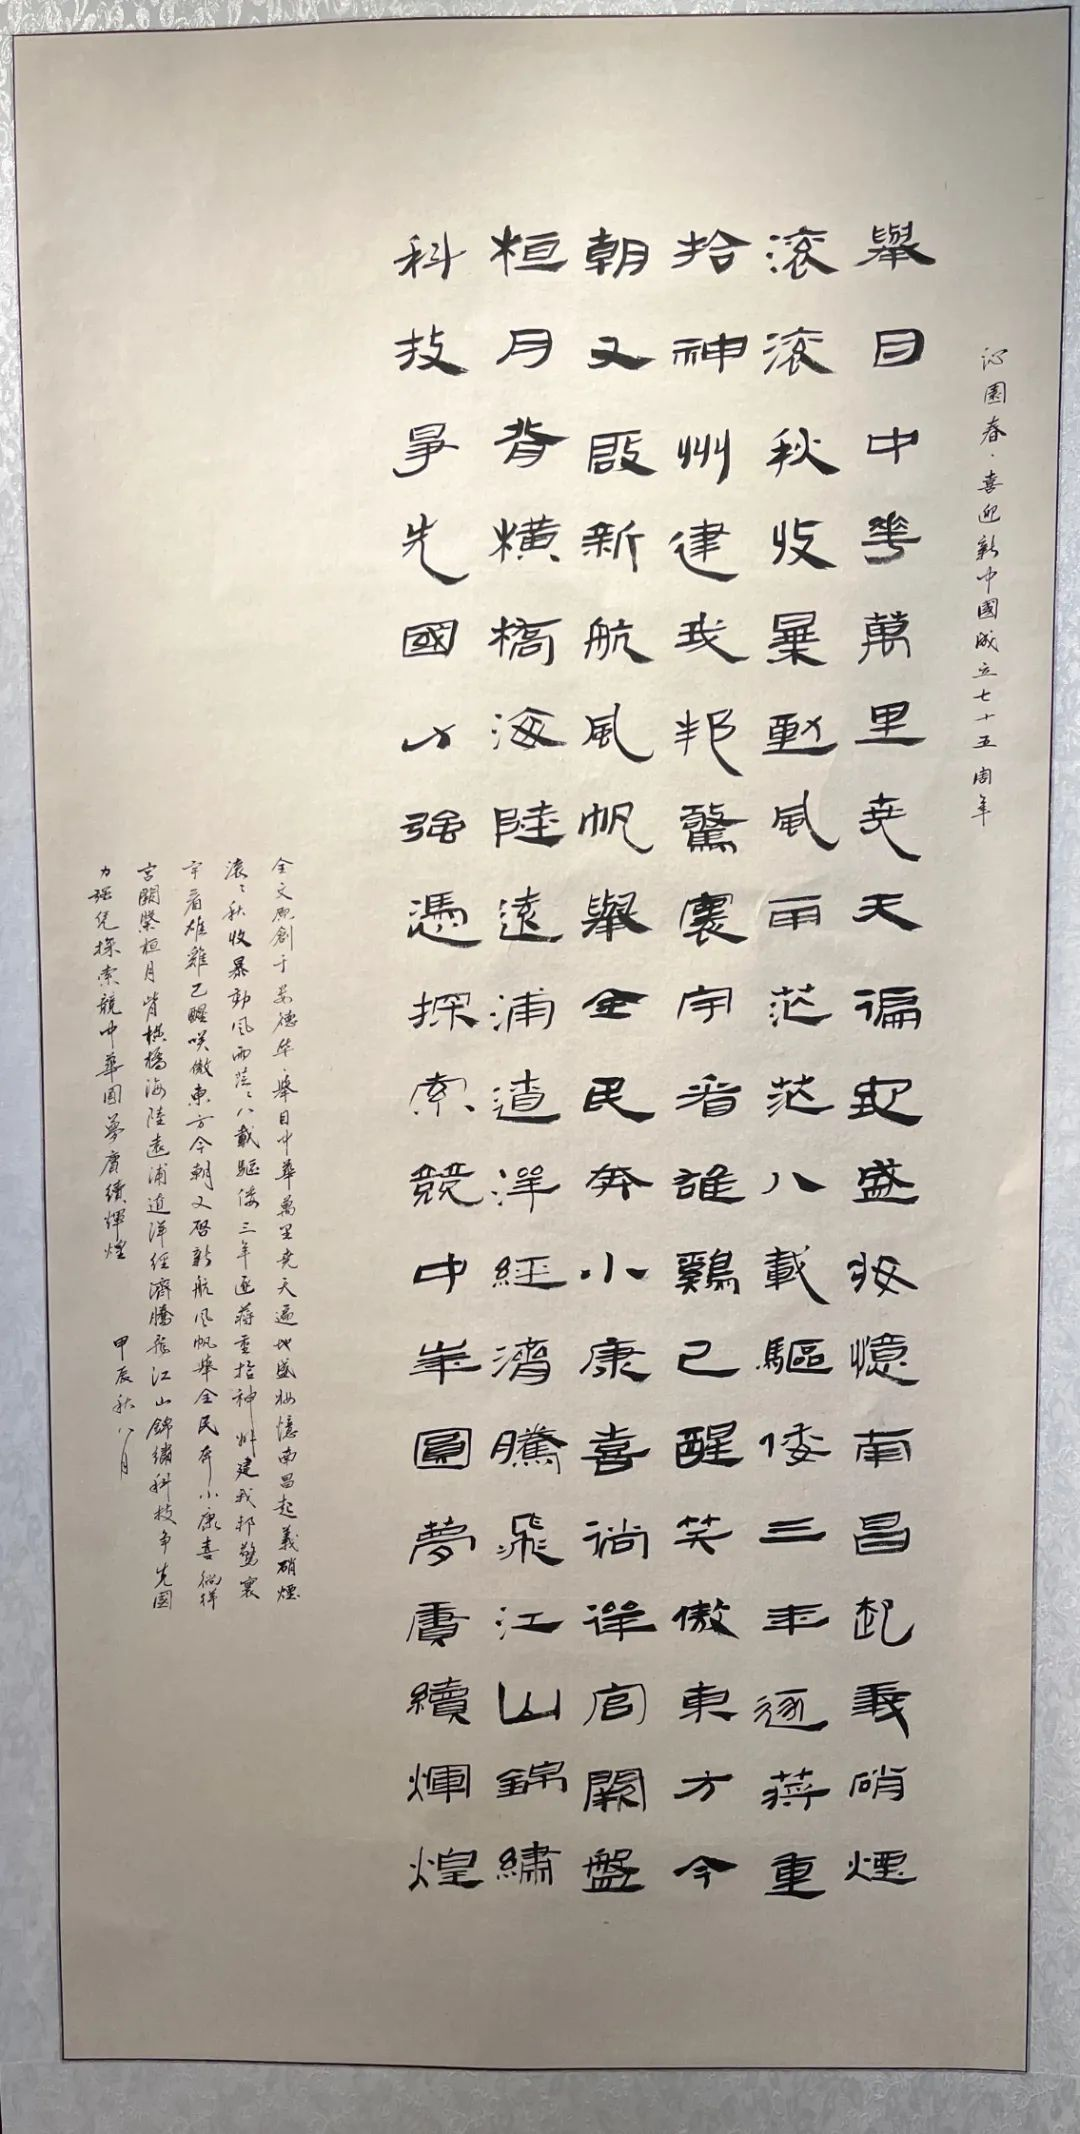 沁園春·喜迎新中國成立七十五周年
舉目中華萬里堯天遍地盛妝憶南昌起義硝煙
滾滾秋收暴動風雨茫茫八載驅倭三年逐蔣重
拾神州建我邦驚寰宇看雄鷄已醒笑傲東方今
朝又啟新航風帆舉全民奔小康喜徜徉宮闕盤
桓月背橫橋海陸遠浦遠洋經濟騰飛江山錦繡
科技爭先國力強憑探索競中華圓夢賡續輝煌
全文原創于晏德华·舉目中華萬里堯天遍地盛妝憶南昌起義硝煙
滾〻秋收暴動風雨茫〻八載驅倭三年逐蔣重拾神州建我邦驚寰
宇看雄雞已醒咲傲東方今朝又啓新航風帆舉全民奔小康喜徜徉
宮闕桓月背橫橋海陸遠浦洋經濟騰飛江山錦繡科技争先國
力强凭探索競中華圓夢賡續輝煌 甲辰秋八月